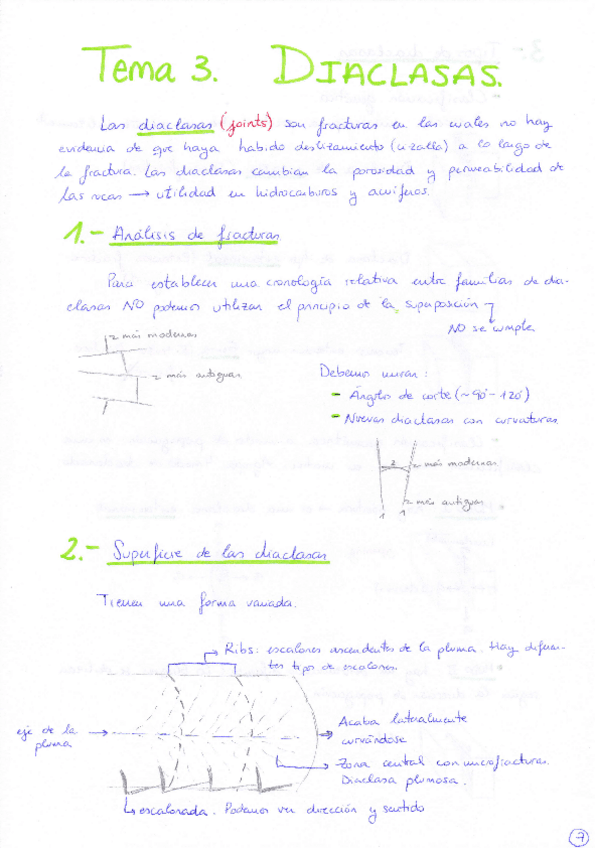 Tema 3. DIACLASAS.
Las diaclasas (joints) son fracturas en las cuales no hay
evidencia de que haya habido deslizamiento (cizalla) a lo largo de
la fractura. Las diaclasas cambian la porosidad y permeabilidad de
las rocas → utilidad en hidrocarburos y acuíferos.
1.- Análisis de fracturas
Para establecer una cronología relativa entre familias de dia-
clasas NO podemos utilizar el principio de la superposición
NO se cumple
2 más modernas
2 más antiguas
Debemos mirar:
- Ángulo de corte (~90º-120º)
- Nuevas diaclasas con curvaturas
2
2 más modernas
2 más antiguas
1 1
2.- Superficie de las diaclasas
Tienen una forma variada.
Ribs: escalones ascendentes de la pluma. Hay diferen-
tes tipos de escalones.
eje de la
pluma
Acaba lateralmente
curvándose
Zona central con microfracturas.
Diaclasa plumosa.
escalonada. Podemos ver dirección y sentido
7